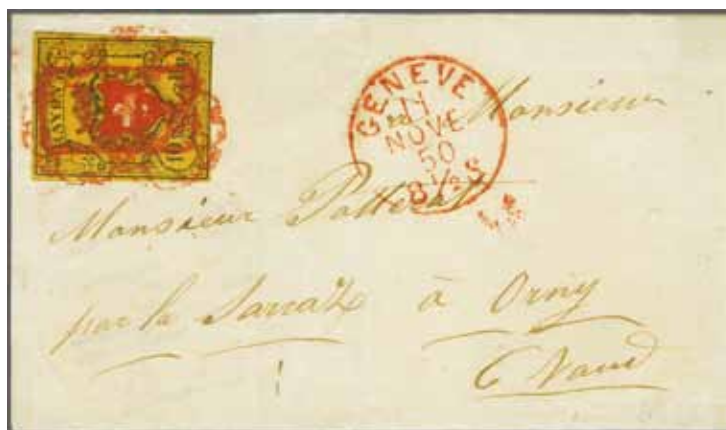 RAYON II
10 Rp.
GENEVE
11
NOVE
50
8½ S
Monsieur
Monsieur Potterat
par la Sarraz à Orny
C Vaud